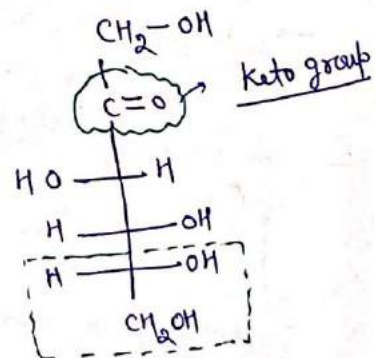 CH2-OH
C=O
Keto group
HO H
H OH
H OH
CH2OH